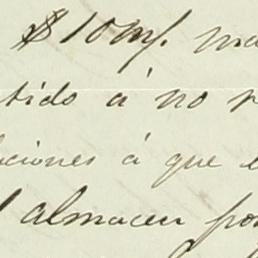 $10 m/. ma
tido á no r
ciones á que e
almacen por